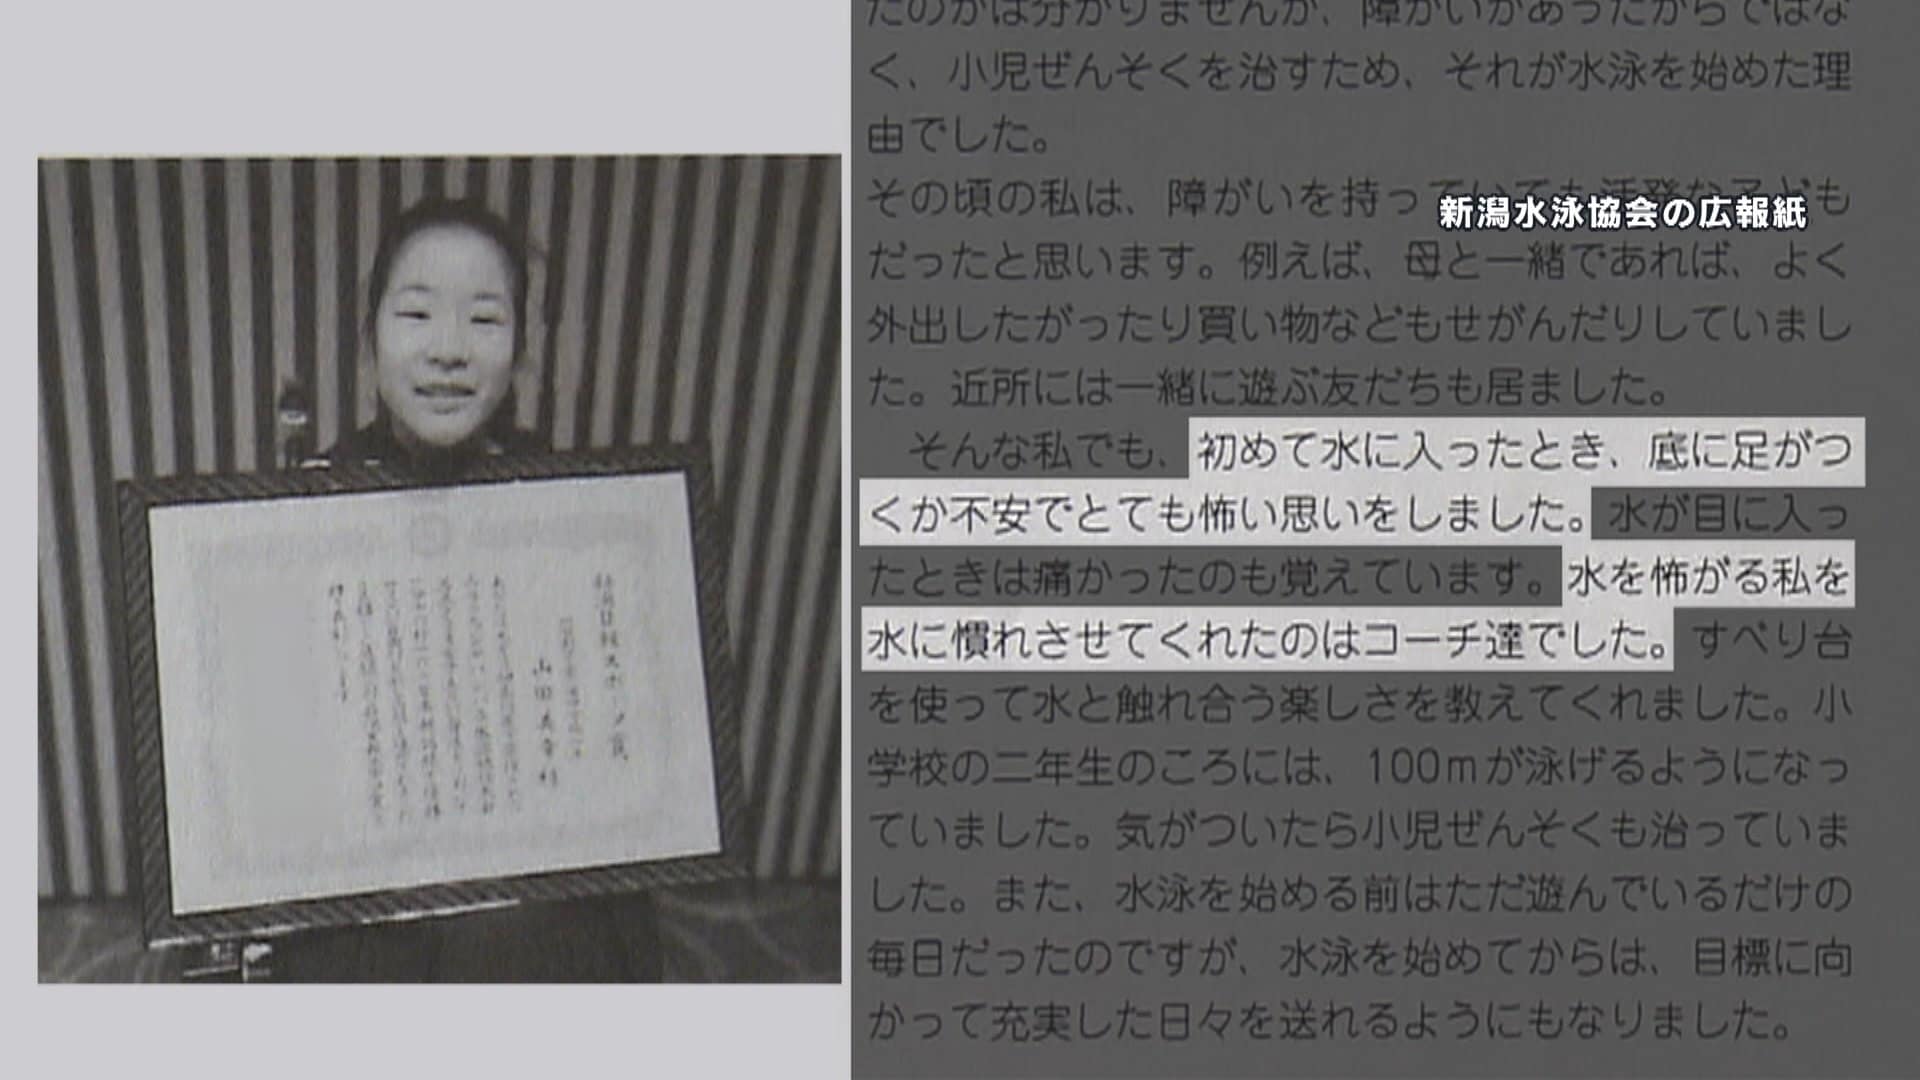 たのかは分かりませんが、障がいがあったからではな
く、小児ぜんそくを治すため、それが水泳を始めた理
由でした。
その頃の私は、障がいを持っていても活発な子ども
新潟水泳協会の広報紙
だったと思います。例えば、母と一緒であれば、よく
外出したがったり買い物などもせがんだりしていまし
た。近所には一緒に遊ぶ友だちも居ました。
そんな私でも、初めて水に入ったとき、底に足がつ
くか不安でとても怖い思いをしました。水が目に入っ
たときは痛かったのも覚えています。水を怖がる私を
水に慣れさせてくれたのはコーチ達でした。すべり台
を使って水と触れ合う楽しさを教えてくれました。小
学校の二年生のころには、100mが泳げるようになっ
ていました。気がついたら小児ぜんそくも治っていま
した。また、水泳を始める前はただ遊んでいるだけの
毎日だったのですが、水泳を始めてからは、目標に向
かって充実した日々を送れるようにもなりました。
新潟日報スポーツ賞
山田美幸様